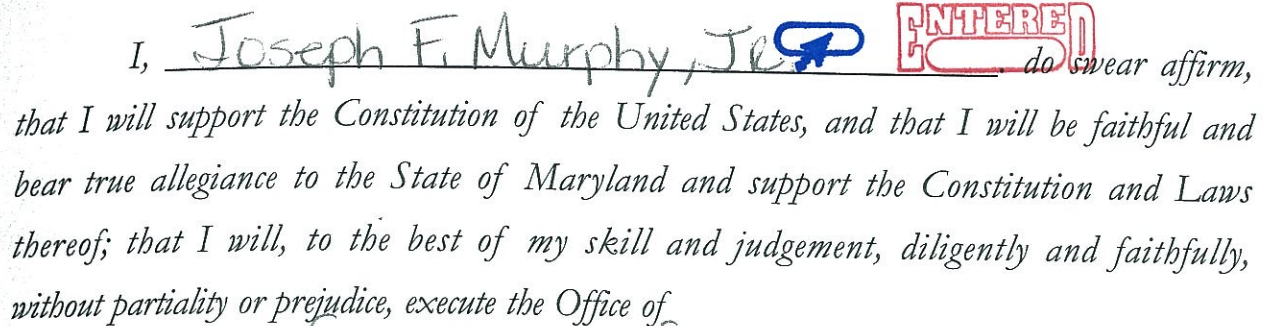 I, Joseph F. Murphy, Jr. ENTERED . do swear affirm,
that I will support the Constitution of the United States, and that I will be faithful and
bear true allegiance to the State of Maryland and support the Constitution and Laws
thereof; that I will, to the best of my skill and judgement, diligently and faithfully,
without partiality or prejudice, execute the Office of